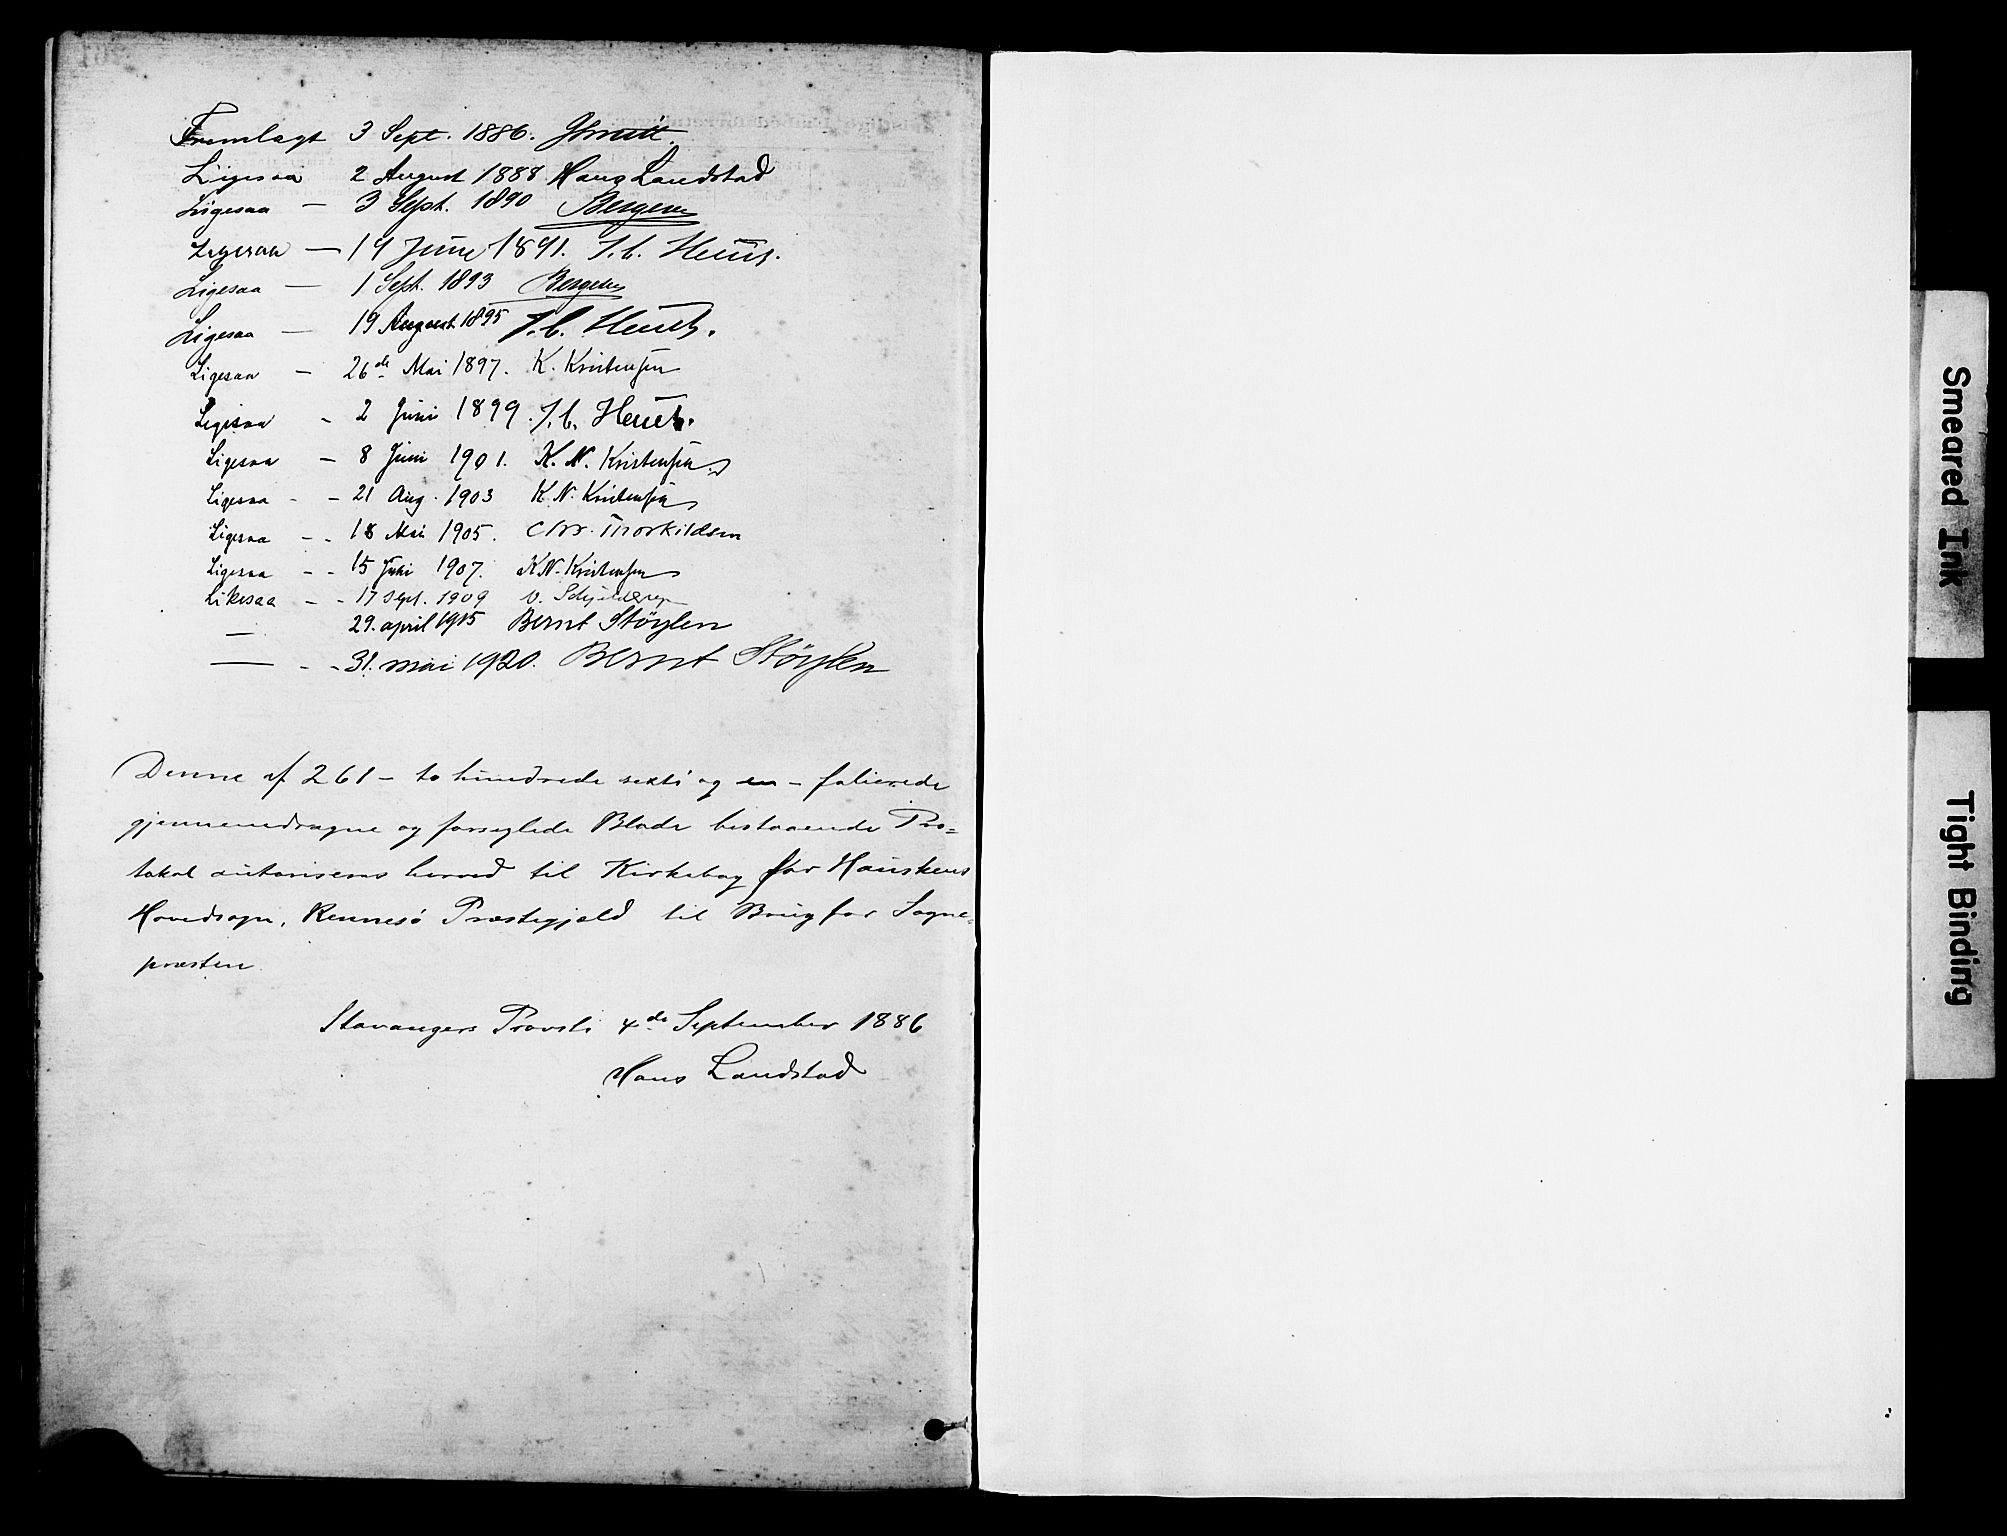 Fremlagt 3 Sept. 1886.
Ligesaa 2 August 1888 Hans Landstad
Ligesaa — 3 Sept. 1890 Bergesen
Ligesaa — 19 Juni 1891. J. C. Heuch.
Ligesaa — 1 Sept. 1893 Bergesen
Ligesaa — 19 August 1895 J. C. Heuch.
Ligesaa — 26de Mai 1897. K. Kristensen
Ligesaa - 2 Juni 1899. J. C. Heuch.
Ligesaa — 8 Juni 1901. K. N. Kristensen
Ligesaa - - 21 Aug. 1903 K. N. Kristensen
Ligesaa - - 18 Mai 1905. Chr. Thorkildsen
Ligesaa - - 15 Juni 1907. K N. Kristensen
Likesaa - - 17 sept. 1909 V. Schjelderup
— 29. april 1915 Bernt Støylen
— - - 31. mai 1920. Bernt Støylen
Denne af 261 - to hundrede sexti og en - folierede
gjennemdragne og forseglede Blade bestaaende Pro=
tokol autoriseres herved til Kirkebog for Hauskens
Hovedsogn, Rennesö Præstegjeld til Brug for Sogne=
præsten.
Stavangers Provsti 4de September 1886
Hans Landstad
Smeared Ink
Tight Binding